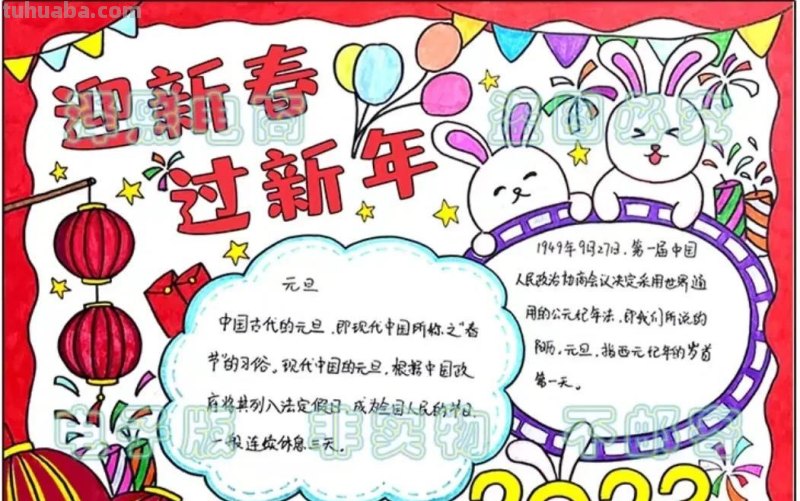 tuhuaba.com
迎新春
过新年
电商
电子版 非实物 不邮寄
元旦
中国古代的元旦,即现代中国所称之"春
节"的习俗。现代中国的元旦,根据中国政
府将其列入法定假日,成为全国人民的节日
一般连续休息三天。
1949年9月27日,第一届中国
人民政治协商会议决定采用世界通
用的公元纪年法,即我们所说的
阳历。元旦,指西元纪年的岁首
第一天。
2023